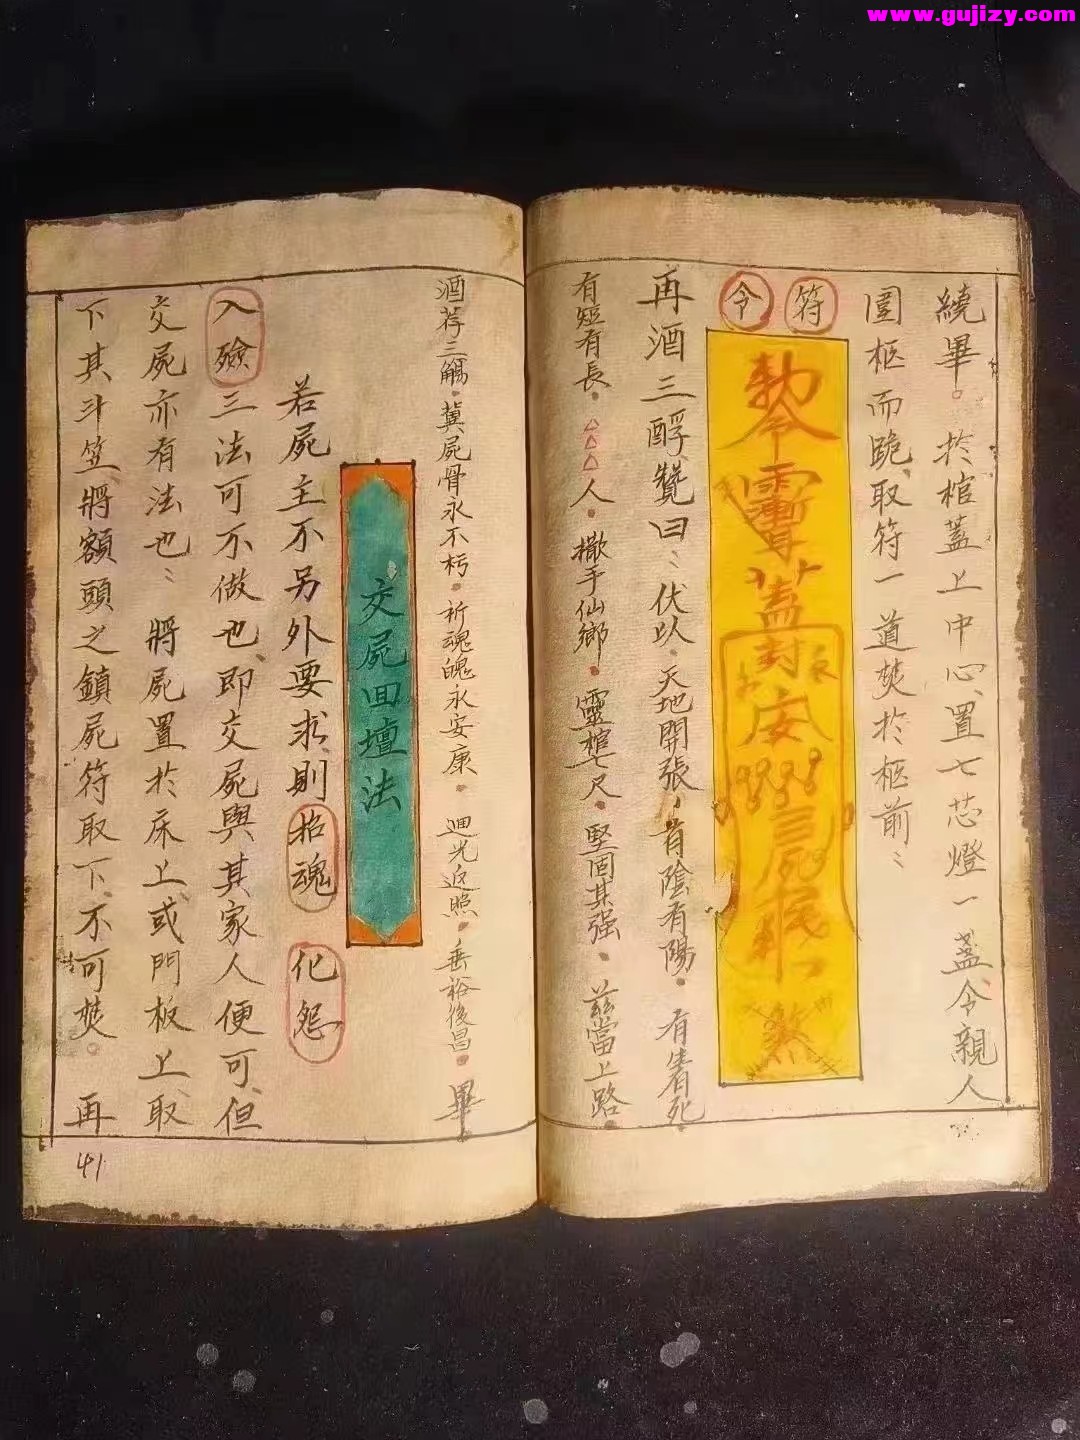 www.gujizy.com
繞畢。於棺蓋上中心、置七芯燈一盞、令親人
圍柩而跪、取符一道焚於柩前、
符
令
勅令
蓋封安
三
煞
再酒三酹、贊曰、伏以、天地開張、有陰有陽、有生有死
有短有長、△△△人、撒手仙鄉、靈棺七尺、堅固其强、茲當上路
酒荐三觴、冀屍骨永不朽、祈魂魄永安康、迴光返照、垂裕後昌、畢
交屍回壇法
若屍主不另外要求、則招魂 化怨
入殮三法可不做也、即交屍與其家人便可、但
交屍亦有法也、將屍置於床上、或門板上、取
下其斗笠、將額頭之鎮屍符取下、不可焚。再
41